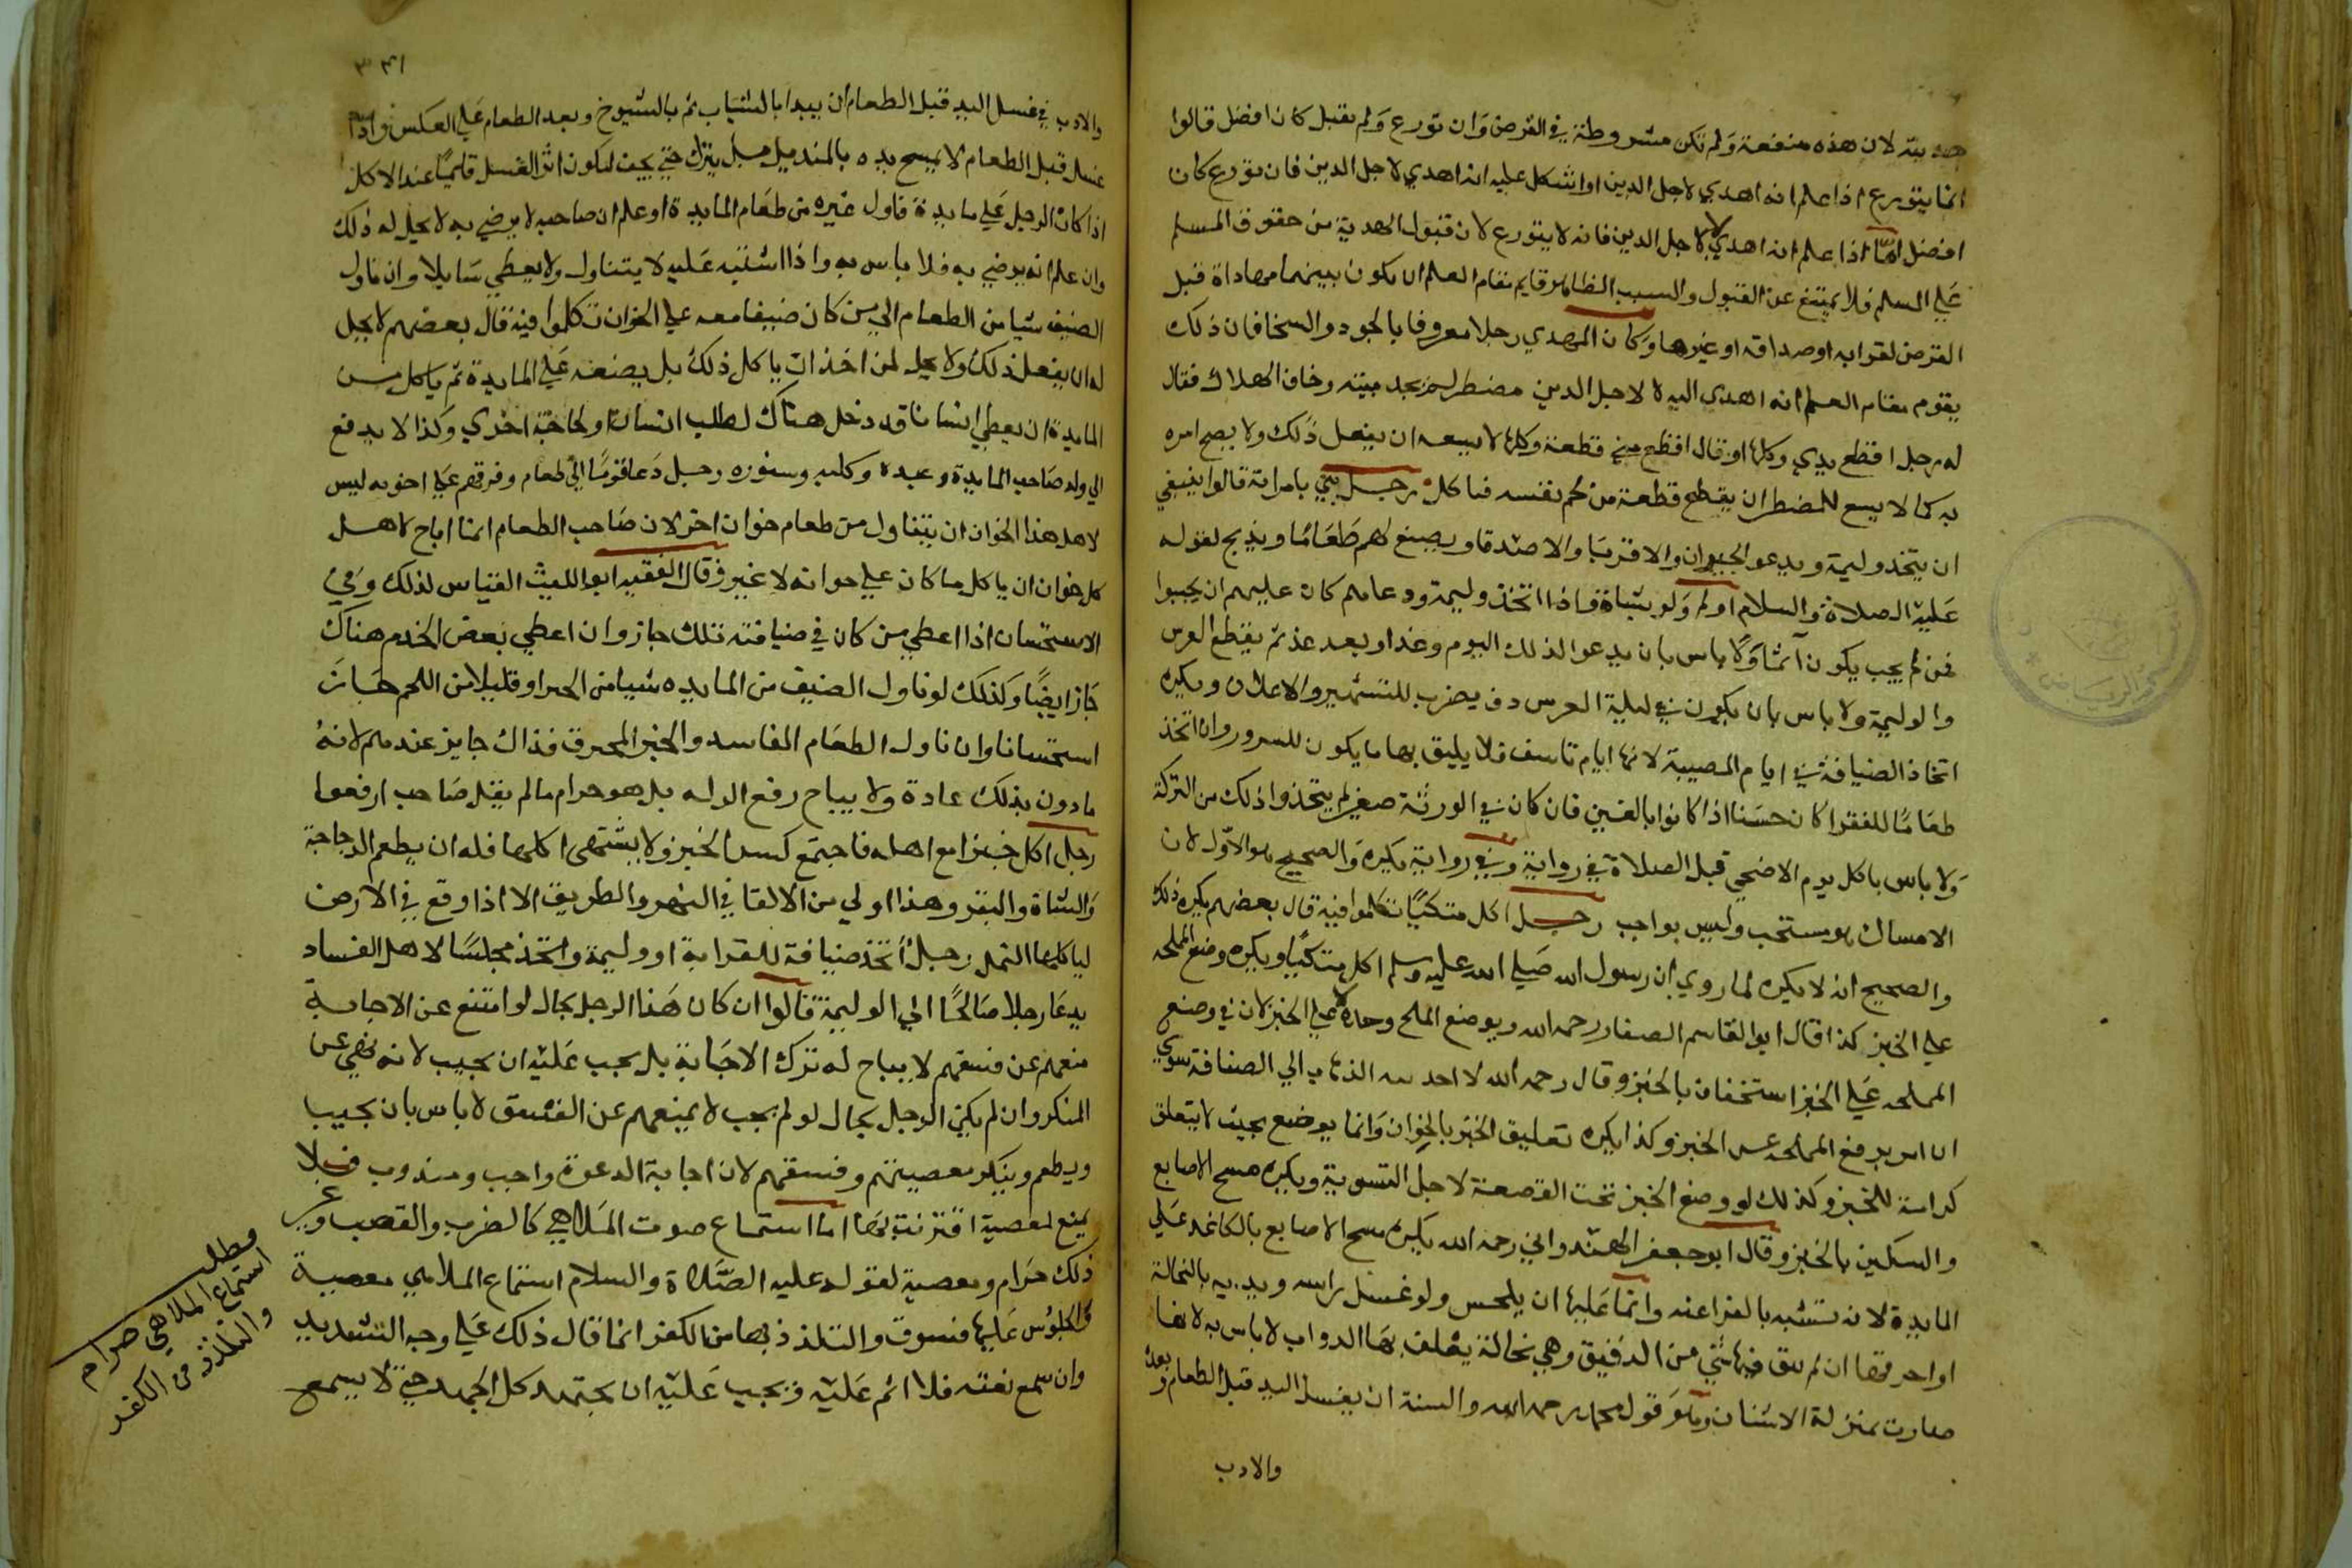 هديته لان هذه منفعة ولم تكن مشروطة في القرض وان تورع ولم يقبل كان افضل قالوا
انما يتورع اذا علم انه اهدي لاجل الدين او اشكل عليه انه اهدي لاجل الدين فان تورع كان
افضل اما اذا علم انه اهدي لا لاجل الدين فانه لا يتورع لان قبول الهدية من حقوق المسلم
علي المسلم فلا يمتنع عن القبول والسبب الظاهر قايم مقام العلم ان يكون بينهما مهاداة قبل
القرض لقرابه او صداقه او غيرها وكان المهدي رجلا معروفا بالجود والسخا فان ذلك
يقوم مقام العلم انه اهدي اليه لا لاجل الدين مضطر لم يجد ميته وخاف الهلاك فقال
له رجل اقطع يدي وكلها او قال اقطع مني قطعة وكلها لا يسعه ان يفعل ذلك ولا يصح امره
به كما لا يسع للمضطر ان يقطع قطعة من لحم نفسه فياكل رجل بني بامراة قالوا ينبغي
ان يتخذ وليمة ويدعو الجيران والاقربا والاصدقا ويصنع لهم طعاما ويذبح لقوله
عليه الصلاة والسلام اولم ولو بشاة فاذا اتخذ وليمة ودعاهم كان عليهم ان يجيبوا
فمن لم يجب يكون آثما ولا باس بان يدعو الذلك اليوم وغدا وبعد غد ثم يقطع العرس
والوليمة ولا باس بان يكون في ليلة العرس دف يضرب للتشهير والاعلان ويكره
اتخاذ الضيافة في ايام المصيبة لانها ايام تاسف فلا يليق بها ما يكون للسرور وان اتخذ
طعاما للفقرا كان حسنا اذا كانوا بالغين فان كان في الورثة صغير لم يتخذوا ذلك من التركة
ولا باس باكل يوم الاضحي قبل الصلاة في رواية وفي رواية يكره والصحيح هو الاول لان
الامساك هو مستحب وليس بواجب رجل اكل متكئيا تكلموا فيه قال بعضهم يكره ذلك
والصحيح انه لا يكره لما روي ان رسول الله صلي الله عليه وسلم اكل متكئيا ويكره وضع المملحه
علي الخبز كذا قال ابو القاسم الصفار رحمه الله ويوضع الملح وحده علي الخبز لان في وضع
المملحه علي الخبز استخفاف بالخبز وقال رحمه الله لا اجد نيه الذهاب الي الضيافة سوي
ان ارفع المملحه عن الخبز وكذا يكره تعليق الخبز بالخوان وانما يوضع بحيث لا يتعلق
كرامة للخبز وكذلك لو وضع الخبز تحت القصعة لاجل التسوية ويكره مسح الاصابع
والسكين بالخبز وقال ابو جعفر الهندواني رحمه الله يكره مسح الاصابع بالكاغد علي
المايدة لانه تشبه بالفراعنه وانما عليه ان يلحس ولو غسل راسه ويديه بالنخالة
او احرقها ان لم يبق فيها شي من الدقيق وهي نخالة يعلف بها الدواب لا باس به لانها
صارت بمنزلة الاشنان وهو قول محمد رحمه الله والسنة ان يغسل اليد قبل الطعام وبعده
والادب
٣٤١
والادب في غسل اليد قبل الطعام ان يبدا بالشباب ثم بالشيوخ وبعد الطعام علي العكس واذا
غسل قبل الطعام لا يمسح يده بالمنديل بل يترك حتي يجف ليكون اثر الغسل قايما عند الاكل
اذا كان الرجل علي مايدة فناول غيره من طعام المايدة او علم ان صاحبه لا يرضي به لا يحل له ذلك
وان علم انه يرضي به فلا باس به واذا اشتبه عليه لا يتناول ولا يعطي سايلا وان ناول
الضيف شيا من الطعام الي من كان ضيفا معه علي الخوان تكلموا فيه قال بعضهم لا يحل
له ان يفعل ذلك ولا يحل لمن اخذ ان ياكل ذلك بل يضعه علي المايدة ثم ياكل من
المايدة ان يعطي انسانا قد دخل هناك لطلب انسان او لحاجة اخري وكذا لا يدفع
الي ولد صاحب المايدة وعبده وكلبه وسنوره رجل دعا قوما الي طعام وفرقهم علي اخونه ليس
لاهل هذا الخوان ان يتناول من طعام خوان اخر لان صاحب الطعام انما اباح لاهل
كل خوان ان ياكل ما كان علي خوانه لا غير وقال الفقيه ابو الليث القياس لذلك وفي
الاستحسان اذا اعطي من كان في ضيافته تلك جاز وان اعطي بعض الخدم هناك
جاز ايضا وكذلك لو ناول الضيف من المايده شيا من الخبز او قليلا من اللحم جاز
استحسانا وان ناول الطعام الفاسد والخبز المحرق فذاك جايز عندهم لانه
مادون بذلك عادة ولا يباح رفع الزله بل هو حرام مالم يقل صاحب ارفعوا
رجل اكل خبزا مع اهله فاجتمع كسر الخبز ولا يشتهي اكلها فله ان يطعم الدجاجة
والشاة والبقر وهذا اولي من الالقا في النهر والطريق الا اذا وقع في الارض
لياكلها النمل رجل اتخذ ضيافة للقرابة او وليمة واتخذ مجلسا لاهل الفساد
يدعا رجلا صالحا الي الوليمة قالوا ان كان هذا الرجل بحال لو امتنع عن الاجابة
منعهم عن فسقهم لا يباح له ترك الاجابة بل يجب عليه ان يجيب لانه نهي عن
المنكر وان لم يكن الرجل بحال لو لم يجب لا يمنعهم عن الفسق لا باس بان يجيب
ويطعم وينكر معصيتهم وفسقهم لان اجابة الدعوة واجب ومندوب فلا
يمنع لمعصية اقترنت بها اما استماع صوت الملاهي كالضرب والقصب وغير
ذلك حرام ومعصية لقوله عليه الصلاة والسلام استماع الملاهي معصية
والجلوس عليها فسوق والتلذذ بها من الكفر انما قال ذلك علي وجه التشديد
وان سمع بغته فلا اثم عليه ويجب عليه ان يجتهد كل الجهد حتي لا يسمع
مطلب
استماع الملاهي حرام
والتلذذ من الكفر